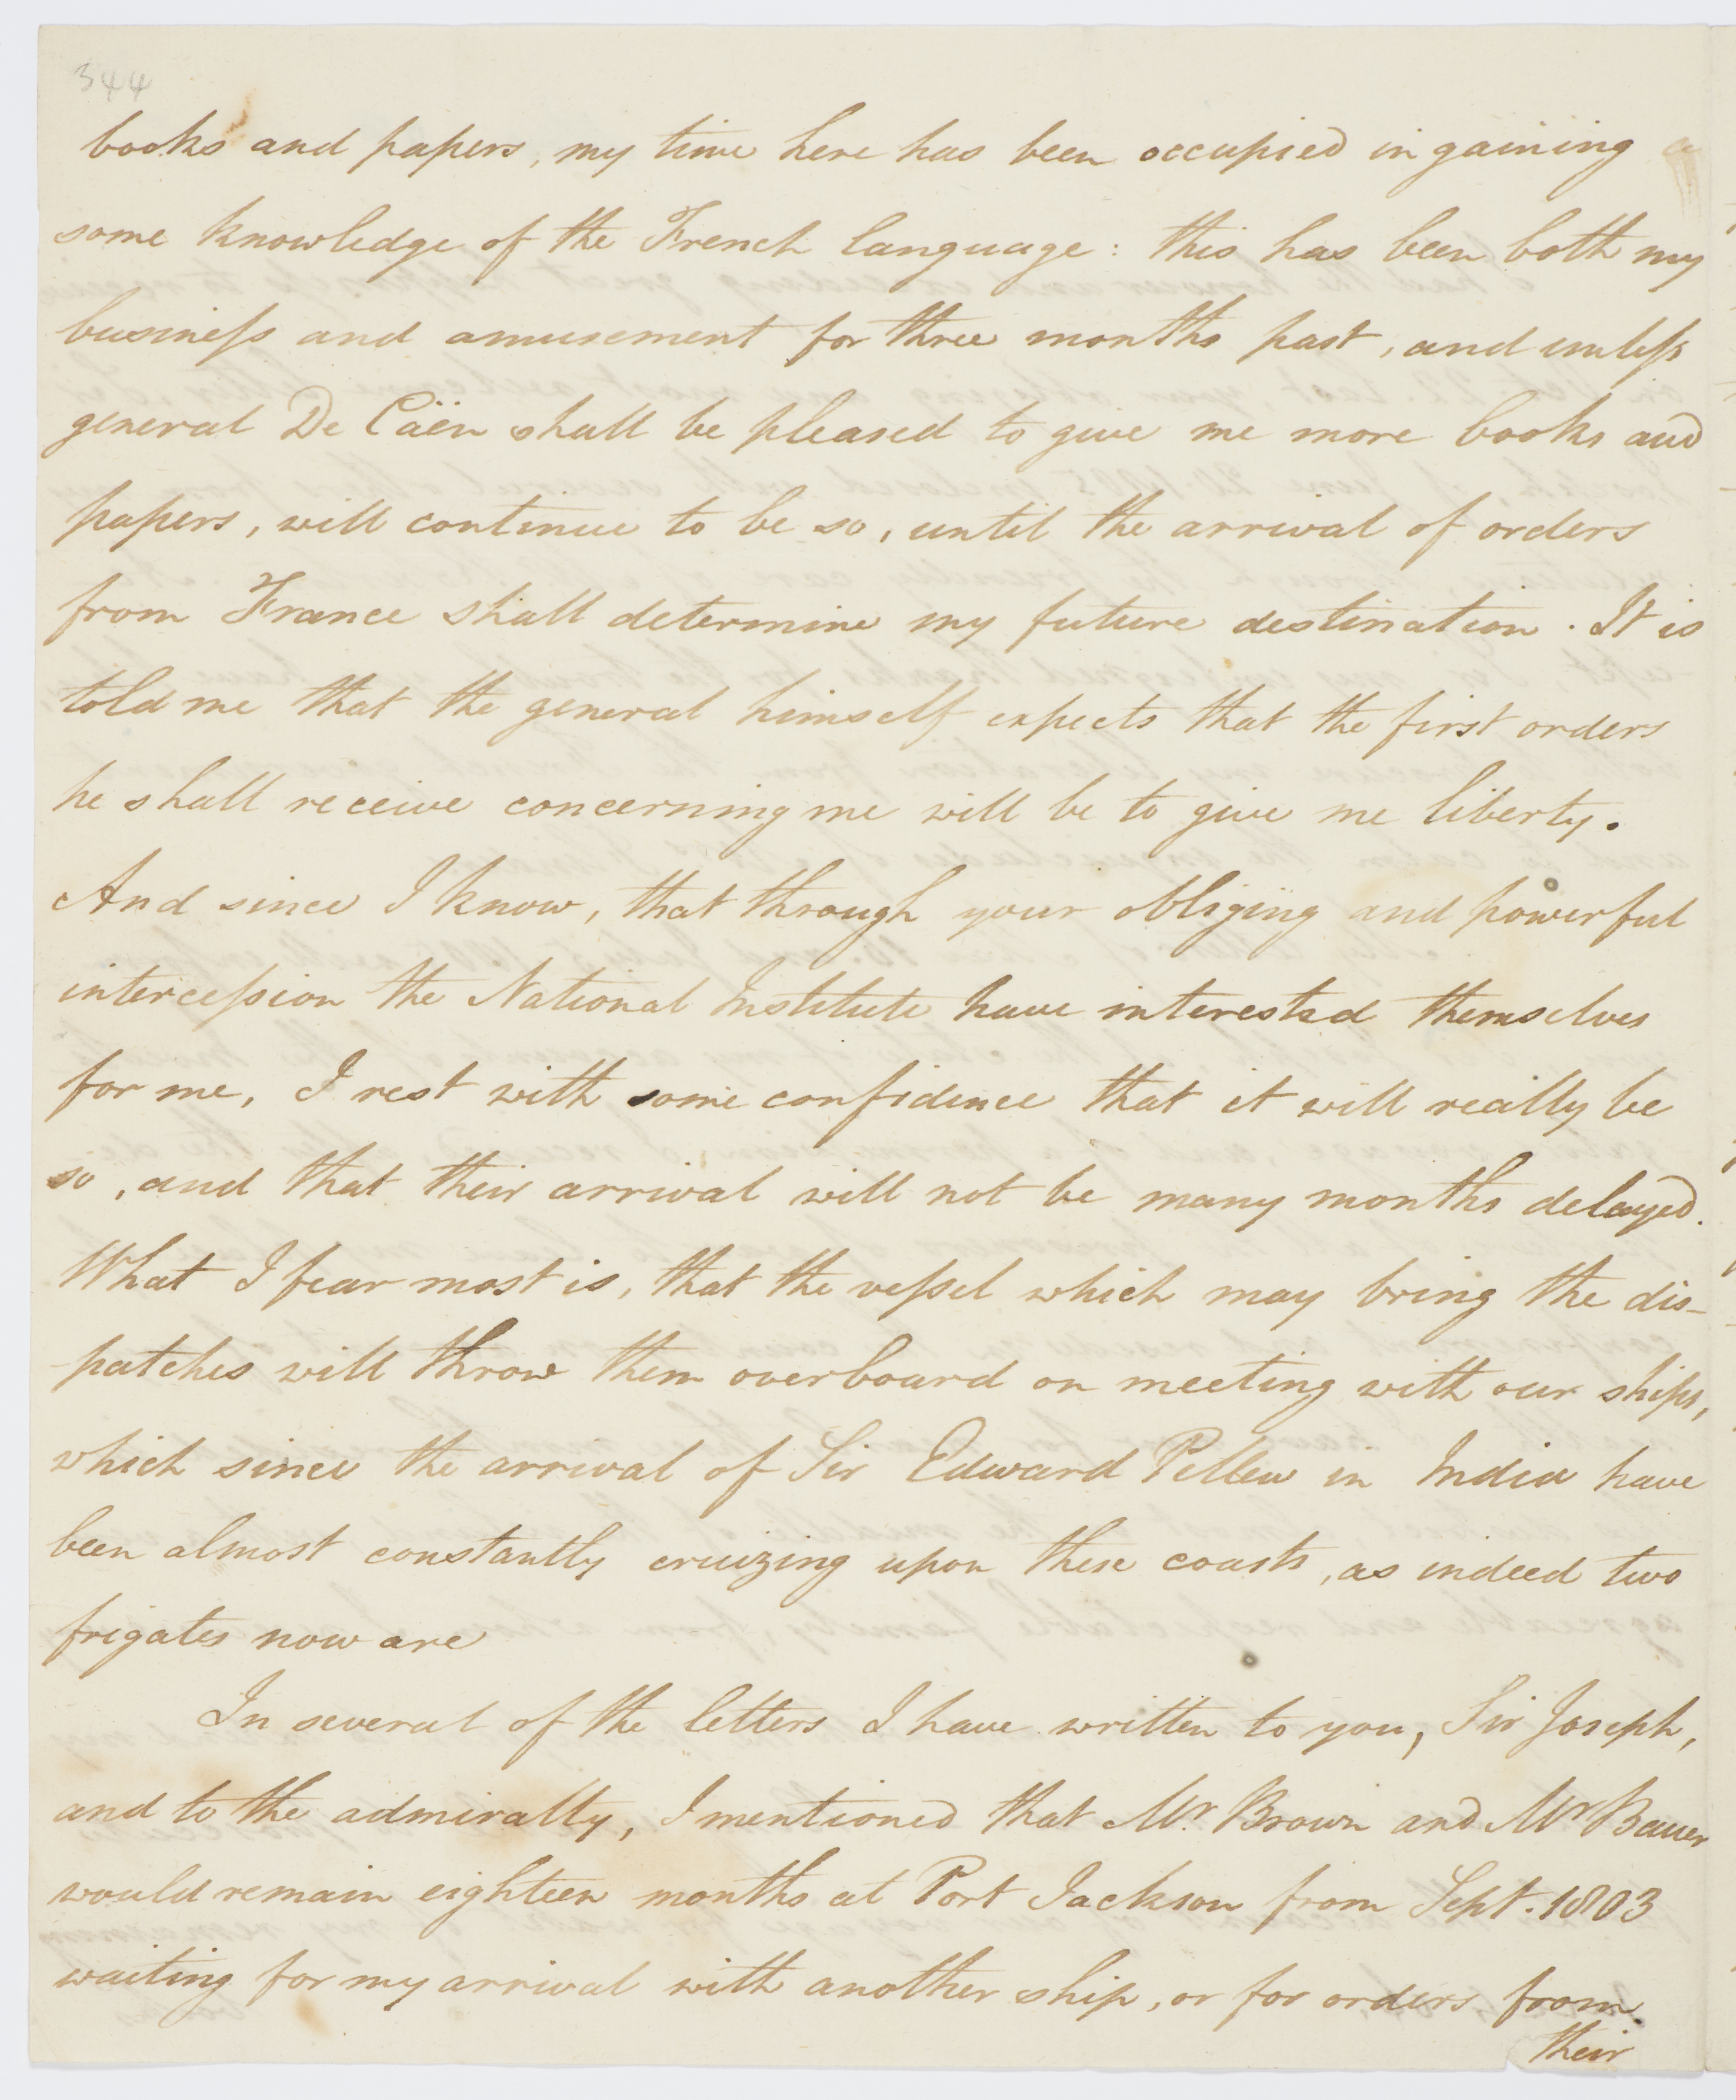 344
books and papers, my time here has been occupied in gaining
some knowledge of the French language: this has been both my
business and amusement for three months past, and unless
general De Cäen shall be pleased to give me more books and
papers, will continue to be so, until the arrival of orders
from France shall determine my future destination. It is
told me that the general himself expects that the first orders
he shall receive concerning me will be to give me liberty.
And since I know, that through your obliging and powerful
intercession the National Institute have interested themselves
for me, I rest with some confidence that it will really be
so, and that their arrival will not be many months delayed.
What I fear most is, that the vessel which may bring the dis-
-patches will throw them overboard on meeting with our ships,
which since the arrival of Sir Edward Pellew in India have
been almost constantly cruizing upon these coasts, as indeed two
frigates now are
In several of the letters I have written to you, Sir Joseph,
and to the admiralty, I mentioned that Mr. Brown and Mr Bauer
would remain eighteen months at Port Jackson from Sept. 1803
waiting for my arrival with another ship, or for orders from
their